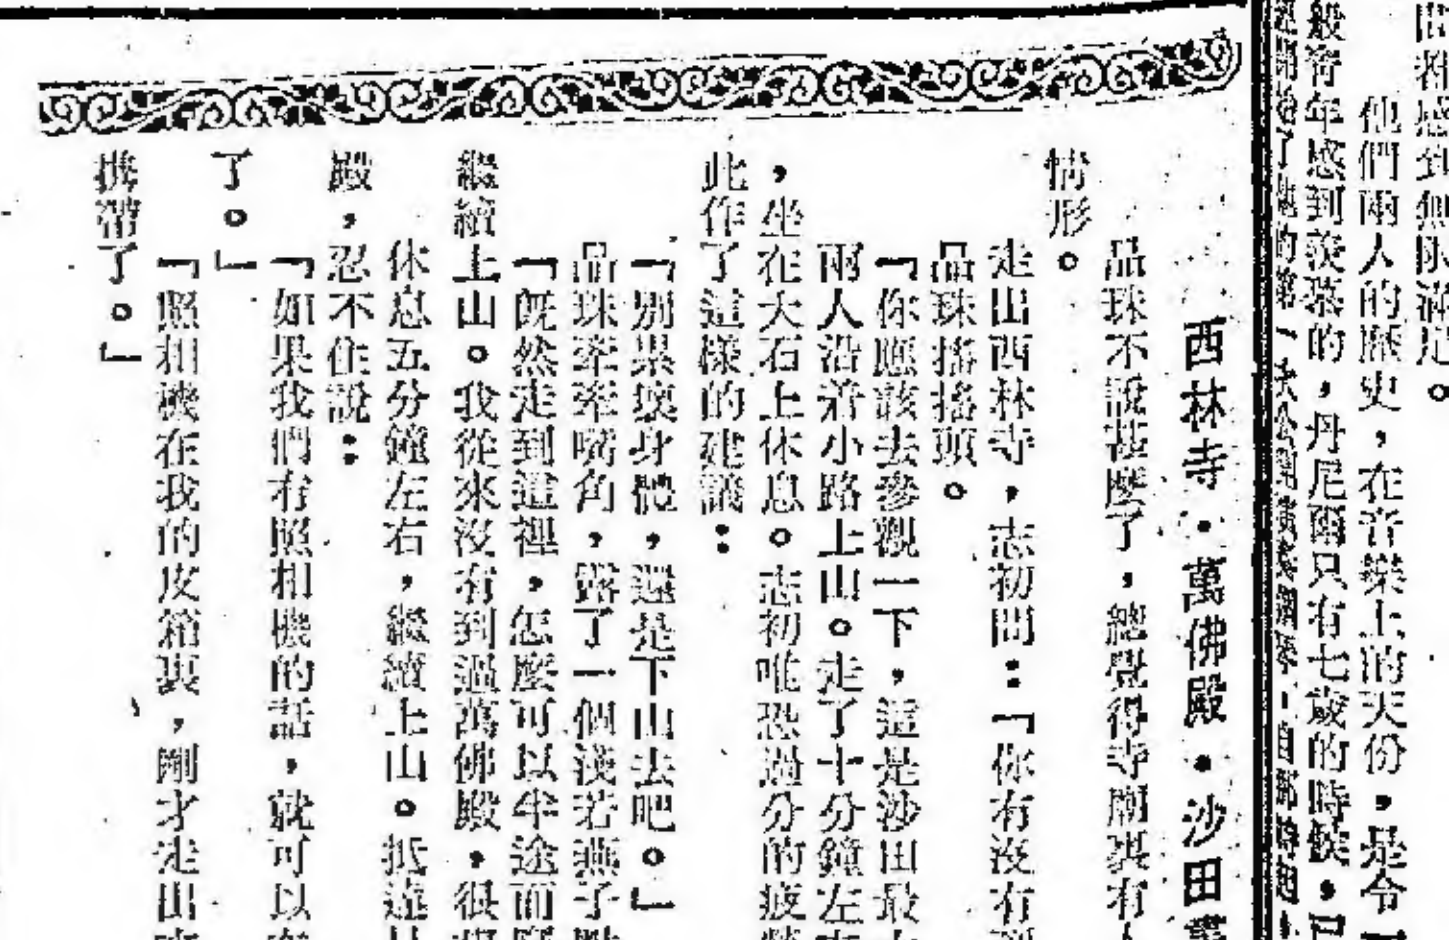 他們兩人的歷史，在音樂上的天份，是令
般青年感到羨慕的，丹尼爾只有七歲的時候，已
西林寺・萬佛殿・沙田
品珠不說甚麼了，總覺得寺廟裏有
情形。
走出西林寺，志初問：「你有沒有
品珠搖搖頭。
「你應該去參觀一下，這是沙田最
兩人沿着小路上山。走了十分鐘左
，坐在大石上休息。志初唯恐過分的疲
此作了這樣的建議：
「別累壞身體，還是下山去吧。」
品珠牽牽嘴角，露了一個淺若燕子
「既然走到這裡，怎麼可以半途而
繼續上山。我從來沒有到過萬佛殿，很
休息五分鐘左右，繼續上山。抵達
殿，忍不住說：
「如果我們有照相機的話，就可以
了。」
「照相機在我的皮箱裏，剛才走出
携帶了。」